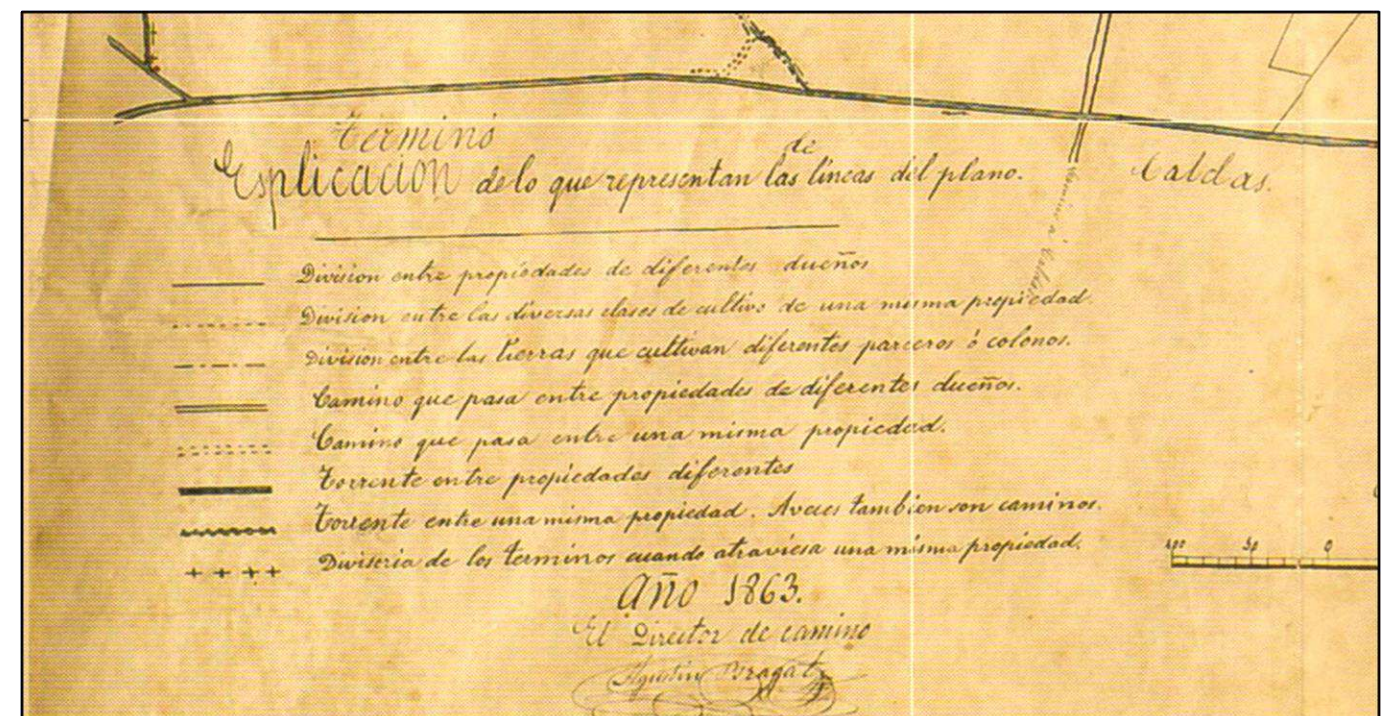 Termino de Caldas.
Esplicacion de lo que representan las lineas del plano.
Camino a Caldas
Division entre propiedades de diferentes dueños
Division entre las diversas clases de cultivo de una misma propiedad.
Division entre las tierras que cultivan diferentes parceros ó colonos.
Camino que pasa entre propiedades de diferentes dueños.
Camino que pasa entre una misma propiedad.
Torrente entre propiedades diferentes
Torrente entre una misma propiedad. Aveces tambien son caminos.
Diviseria de los terminos cuando atraviesa una misma propiedad.
100 50 0
Año 1863.
El Director de camino
Agustin